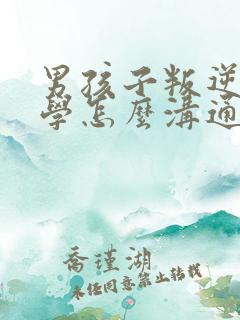 男孩子叛逆
學怎麼溝通
喬瑾湖
未经同意禁止转载